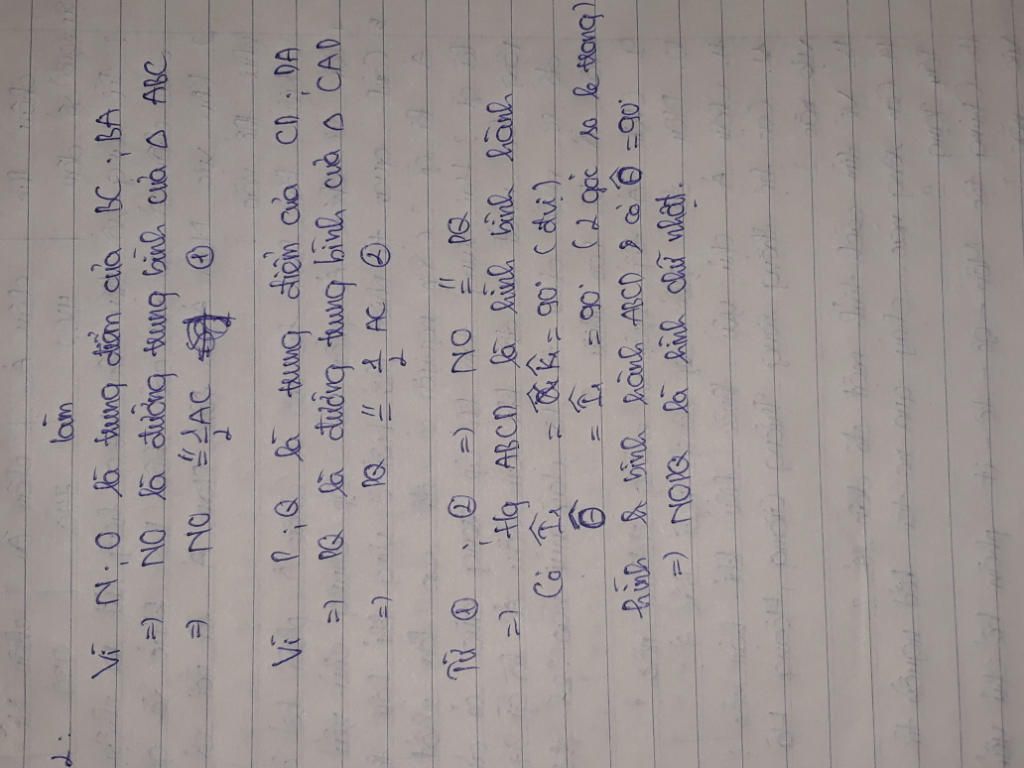 2. Làm
Vì N, O là trung điểm của BC, BA
=) NO là đường trung bình của Δ ABC
=) NO //= 1/2 AC ①
Vì P, Q là trung điểm của CD, DA
=) PQ là đường trung bình của Δ CAD
=) PQ //= 1/2 AC ②
Từ ①, ② =) NO //= PQ
=) Hg ABCD là hình bình hành
Có Î₁ = K̂₁ = 90° (đvị)
Ô = Î₁ = 90° (2 góc so le trong)
hình bình hành ABCD có Ô = 90°
=) NOPQ là hình chữ nhật.